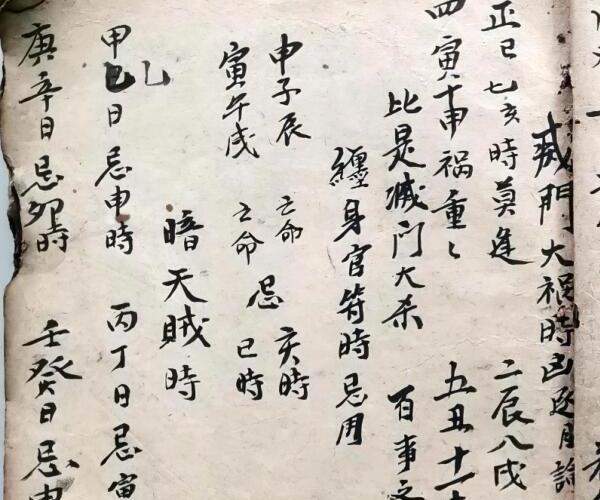 滅門大禍時凶逐月論
正巳七亥時莫逢 二辰八戌
四寅十申祸重〻 五丑十一
比是滅门大杀 百事
纏身官符時忌用
申子辰 亡命 忌 亥時
寅午戌 亡命 巳時
暗天賊時
甲乙日忌申時 丙丁日忌寅
庚辛日忌卯時 壬癸日忌申